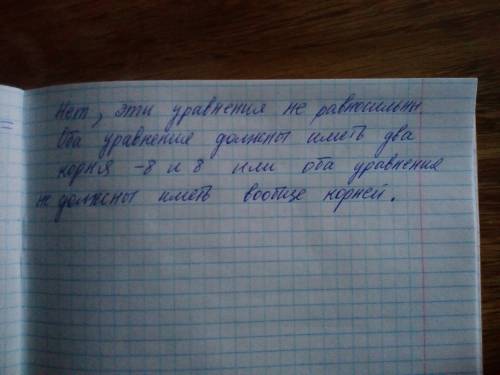 Нет, эти уравнения не равносильны.
Оба уравнения должны иметь два
корня -8 и 8 или оба уравнения
не должны иметь вообще корней.